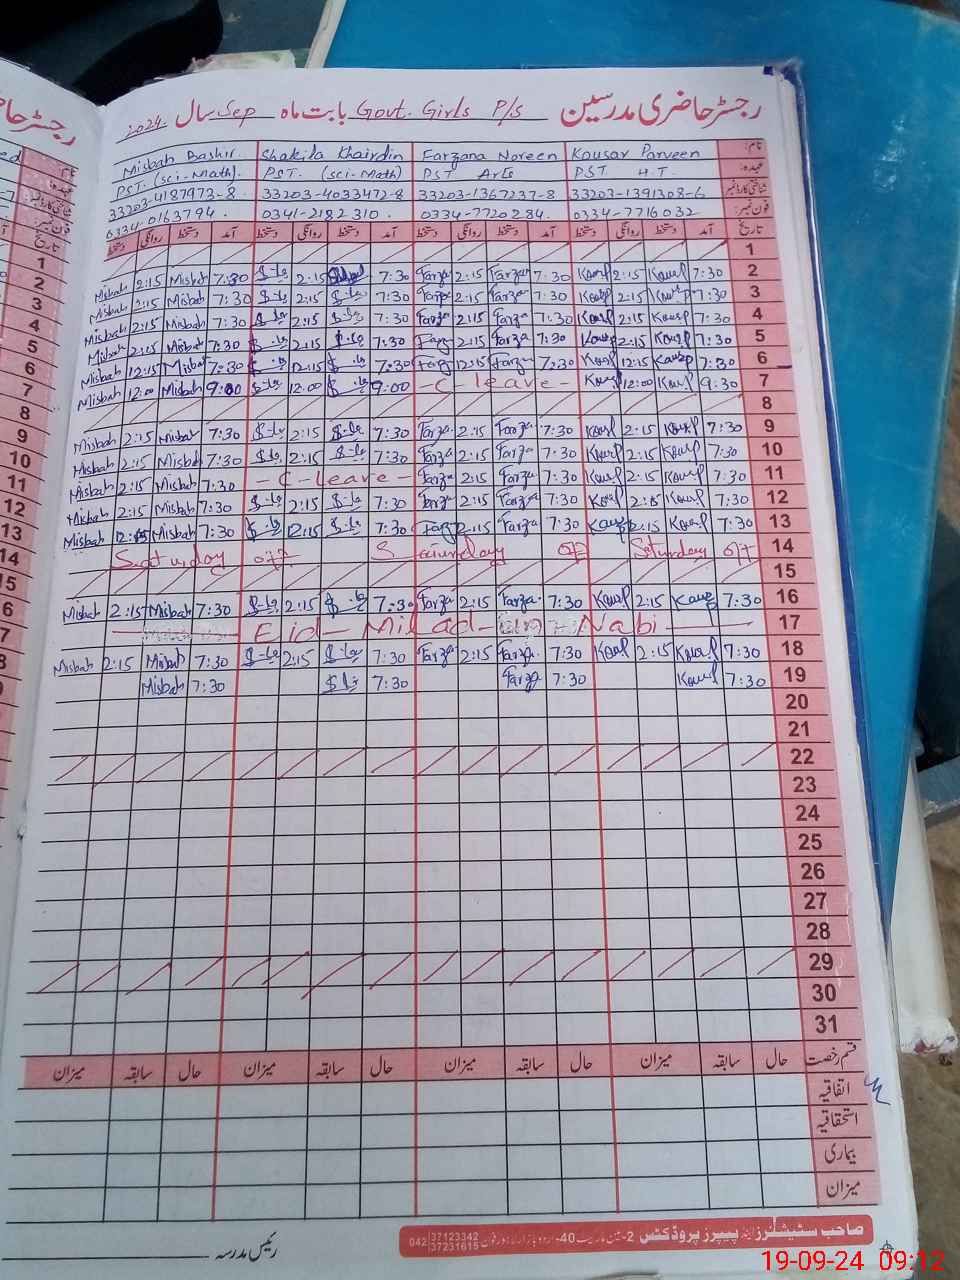 رجسٹر حاضری مدرسین Govt. Girls P/s بابت ماہ Sep سال 2024
نام: Kousar Parveen Farzana Noreen Shakila Khairdin Misbah Bashir
عہدہ: PST H.T. PST Arts PST. (sci-Math) PST. (sci-Math).
شناختی کارڈ نمبر 33203-1391308-6 33203-1367237-8 33203-4033472-8 33203-4187973-8
فون نمبر: 0334-7716032 0334-7720284. 0341-2182310. 0334-0163794.
تاریخ آمد دستخط روانگی دستخط آمد دستخط روانگی دستخط آمد دستخط روانگی دستخط آمد دستخط روانگی دستخط
1
Misbah 2:15 Misbah 7:30 2:15 7:30 Farza 2:15 Farza 7:30 Kousf 2:15 Kousf 7:30 2
Misbah 2:15 Misbah 7:30 2:15 7:30 Farza 2:15 Farza 7:30 Kousf 2:15 Kousf 7:30 3
Misbah 2:15 Misbah 7:30 2:15 7:30 Farza 2:15 Farza 7:30 Kousf 2:15 Kousf 7:30 4
Misbah 2:15 Misbah 7:30 2:15 7:30 Farza 2:15 Farza 7:30 Kousf 2:15 Kousf 7:30 5
Misbah 12:15 Misbah 7:30 12:15 7:30 Farza 12:15 Farza 7:30 Kousf 12:15 Kousf 7:30 6
Misbah 12:00 Misbah 9:00 12:00 9:00 -C-leave- Kousf 12:00 Kousf 9:30 7
8
Misbah 2:15 Misbah 7:30 2:15 7:30 Farza 2:15 Farza 7:30 Kousf 2:15 Kousf 7:30 9
Misbah 2:15 Misbah 7:30 2:15 7:30 Farza 2:15 Farza 7:30 Kousf 2:15 Kousf 7:30 10
Misbah 2:15 Misbah 7:30 -C-leave- Farza 2:15 Farza 7:30 Kousf 2:15 Kousf 7:30 11
Misbah 2:15 Misbah 7:30 2:15 7:30 Farza 2:15 Farza 7:30 Kousf 2:15 Kousf 7:30 12
Misbah 12:15 Misbah 7:30 12:15 7:30 Farza 12:15 Farza 7:30 Kousf 12:15 Kousf 7:30 13
Saturday off Saturday off Saturday off 14
15
Misbah 2:15 Misbah 7:30 2:15 7:30 Farza 2:15 Farza 7:30 Kousf 2:15 Kousf 7:30 16
Eid-Milad-un-Nabi 17
Misbah 2:15 Misbah 7:30 2:15 7:30 Farza 2:15 Farza 7:30 Kousf 2:15 Kousf 7:30 18
Misbah 7:30 7:30 Farza 7:30 Kousf 7:30 19
20
21
22
23
24
25
26
27
28
29
30
31
قسم رخصت حال سابقہ میزان حال سابقہ میزان حال سابقہ میزان حال سابقہ میزان
اتفاقیہ
استحقاقیہ
بیماری
میزان
رئیس مدرسہ
صاحب سٹیشنرز اینڈ پیپرز پروڈکٹس 2-مین مارکیٹ 40-اردو بازار لاہور فون 042 37123342 37231615
19-09-24 09:12